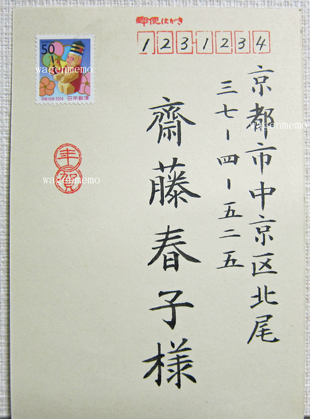 郵便はがき
1231234
50
日本郵便
wagenmemo
wagenmemo
年賀
京都市中京区北尾
三七-四-五二五
齋藤春子様